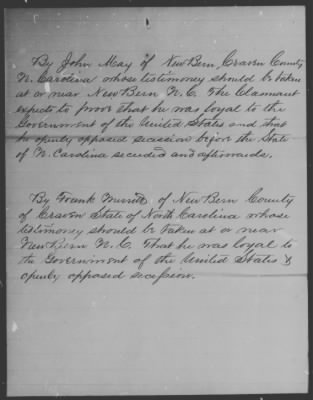 By John May of New Bern, Craven County
N. Carolina whose testimoney should be taken
at or near New Bern N. C. The Claimant
expects to prove that he was loyal to the
Government of the United States and that
he openly opposed secession before the State
of N. Carolina seceeded and afterwards.
By Frank Merritt, of New Bern County
of Craven State of North Carolina whose
testimoney should be taken at or near
New Bern N. C. That he was loyal to
the Government of the United States &
openly opposed secession.